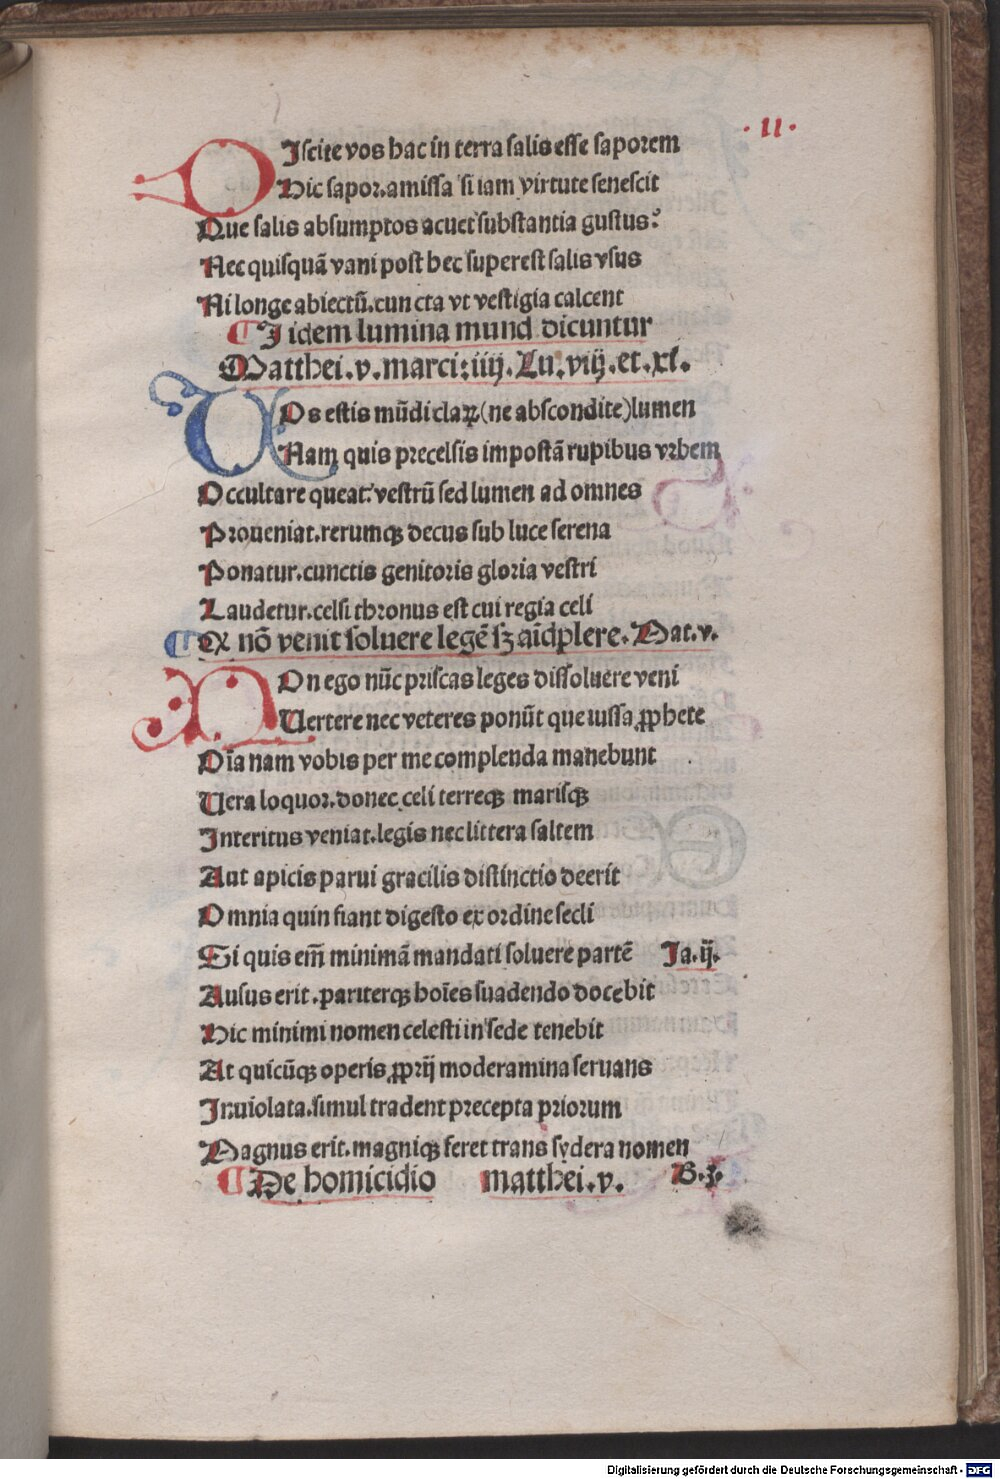 .11.
DIscite vos hac in terra salis esse saporem
Hic sapor.amissa si iam virtute senescit
Que salis absumptos acuet substantia gustus?
Nec quisquā vani post hec superest salis vsus
Ni longe abiectū.cuncta vt vestigia calcent
¶ Iidem lumina mund dicuntur
Matthei.v.marci:iiij.Lu:viij.et.xi.
VOs estis mūdi claꝝ(ne abscondite)lumen
Nam quis precelsis impostā rupibus vrbem
Occultare queat:vestrū sed lumen ad omnes
Proueniat.rerumqꝫ decus sub luce serena
Ponatur.cunctis genitoris gloria vestri
Laudetur.celsi thronus est cui regia celi
¶ Qꝛ nō venit soluere legē sꝫ aīdplere.Mat.v.
NOn ego nūc priscas leges dissoluere veni
Uertere nec veteres ponūt que iussa ꝓphete
Oīa nam vobis per me complenda manebunt
Uera loquor.donec celi terreqꝫ marisqꝫ
Interitus veniat.legis nec littera saltem
Aut apicis parui gracilis distinctio deerit
Omnia quin fiant digesto ex ordine secli
Si quis em̄ minimā mandati soluere partē Ja.ij.
Ausus erit.pariterqꝫ hoīes suadendo docebit
Hic minimi nomen celesti in sede tenebit
At quicūqꝫ operis ꝓprij moderamina seruans
Inuiolata.simul tradent precepta priorum
Magnus erit.magniqꝫ feret trans sydera nomen
¶ De homicidio matthei.v. B.3.
Digitalisierung gefördert durch die Deutsche Forschungsgemeinschaft - DFG